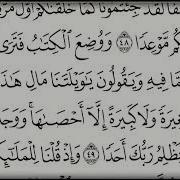 لَّقَدْ جِئْتُمُونَا كَمَا خَلَقْنَـٰكُمْ أَوَّلَ
مَّوْعِدًا ٤٨ وَوُضِعَ ٱلْكِتَـٰبُ فَتَرَى
فِيهِ وَيَقُولُونَ يَـٰوَيْلَتَنَا مَالِ هَـٰذَا
غِيرَةً وَلَا كَبِيرَةً إِلَّآ أَحْصَىٰهَا ۚ وَوَجَد
ظْلِمُ رَبُّكَ أَحَدًا ٤٩ وَإِذْ قُلْنَا لِلْمَلَـٰٓئِكَ